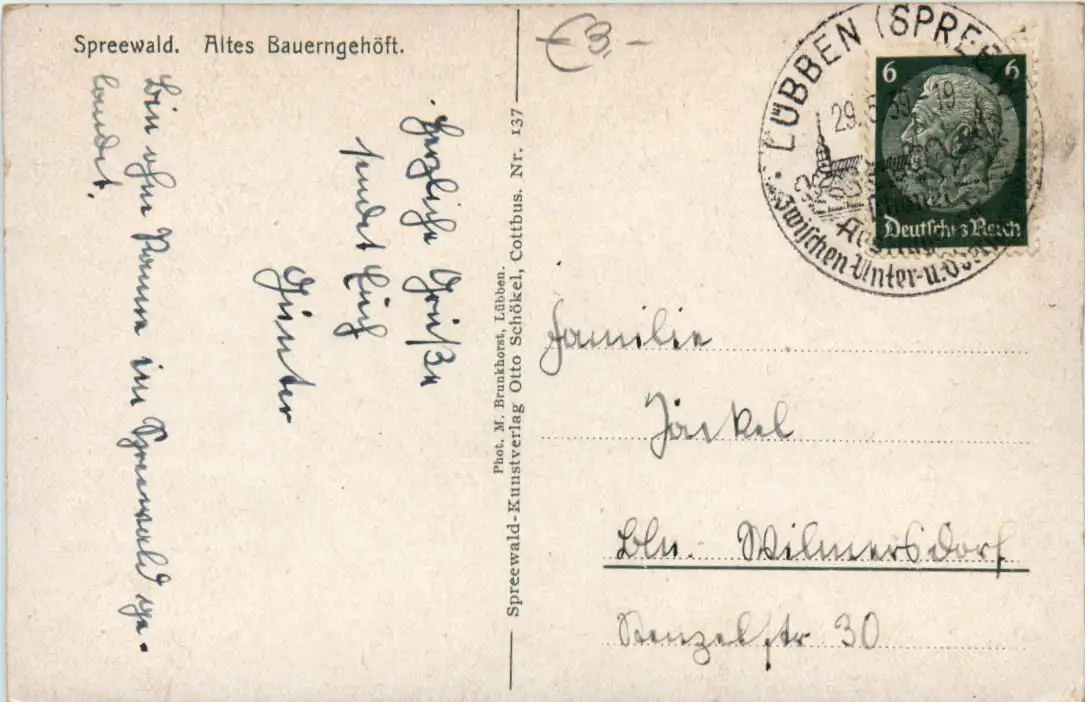 Spreewald. Altes Bauerngehöft.
€ 3.-
LÜBBEN (SPREE
29.5.39. 19
zwischen Unter- u.
6 6
Deutsches Reich
Herzliche Grüße
sendet Euch
Günter
Bin ohne Panne im Spreewald ge-
landet.
Phot. M. Brunkhorst, Lübben.
Spreewald-Kunstverlag Otto Schökel, Cottbus. Nr. 137
Familie
Jäckel
Bln.- Wilmersdorf
30